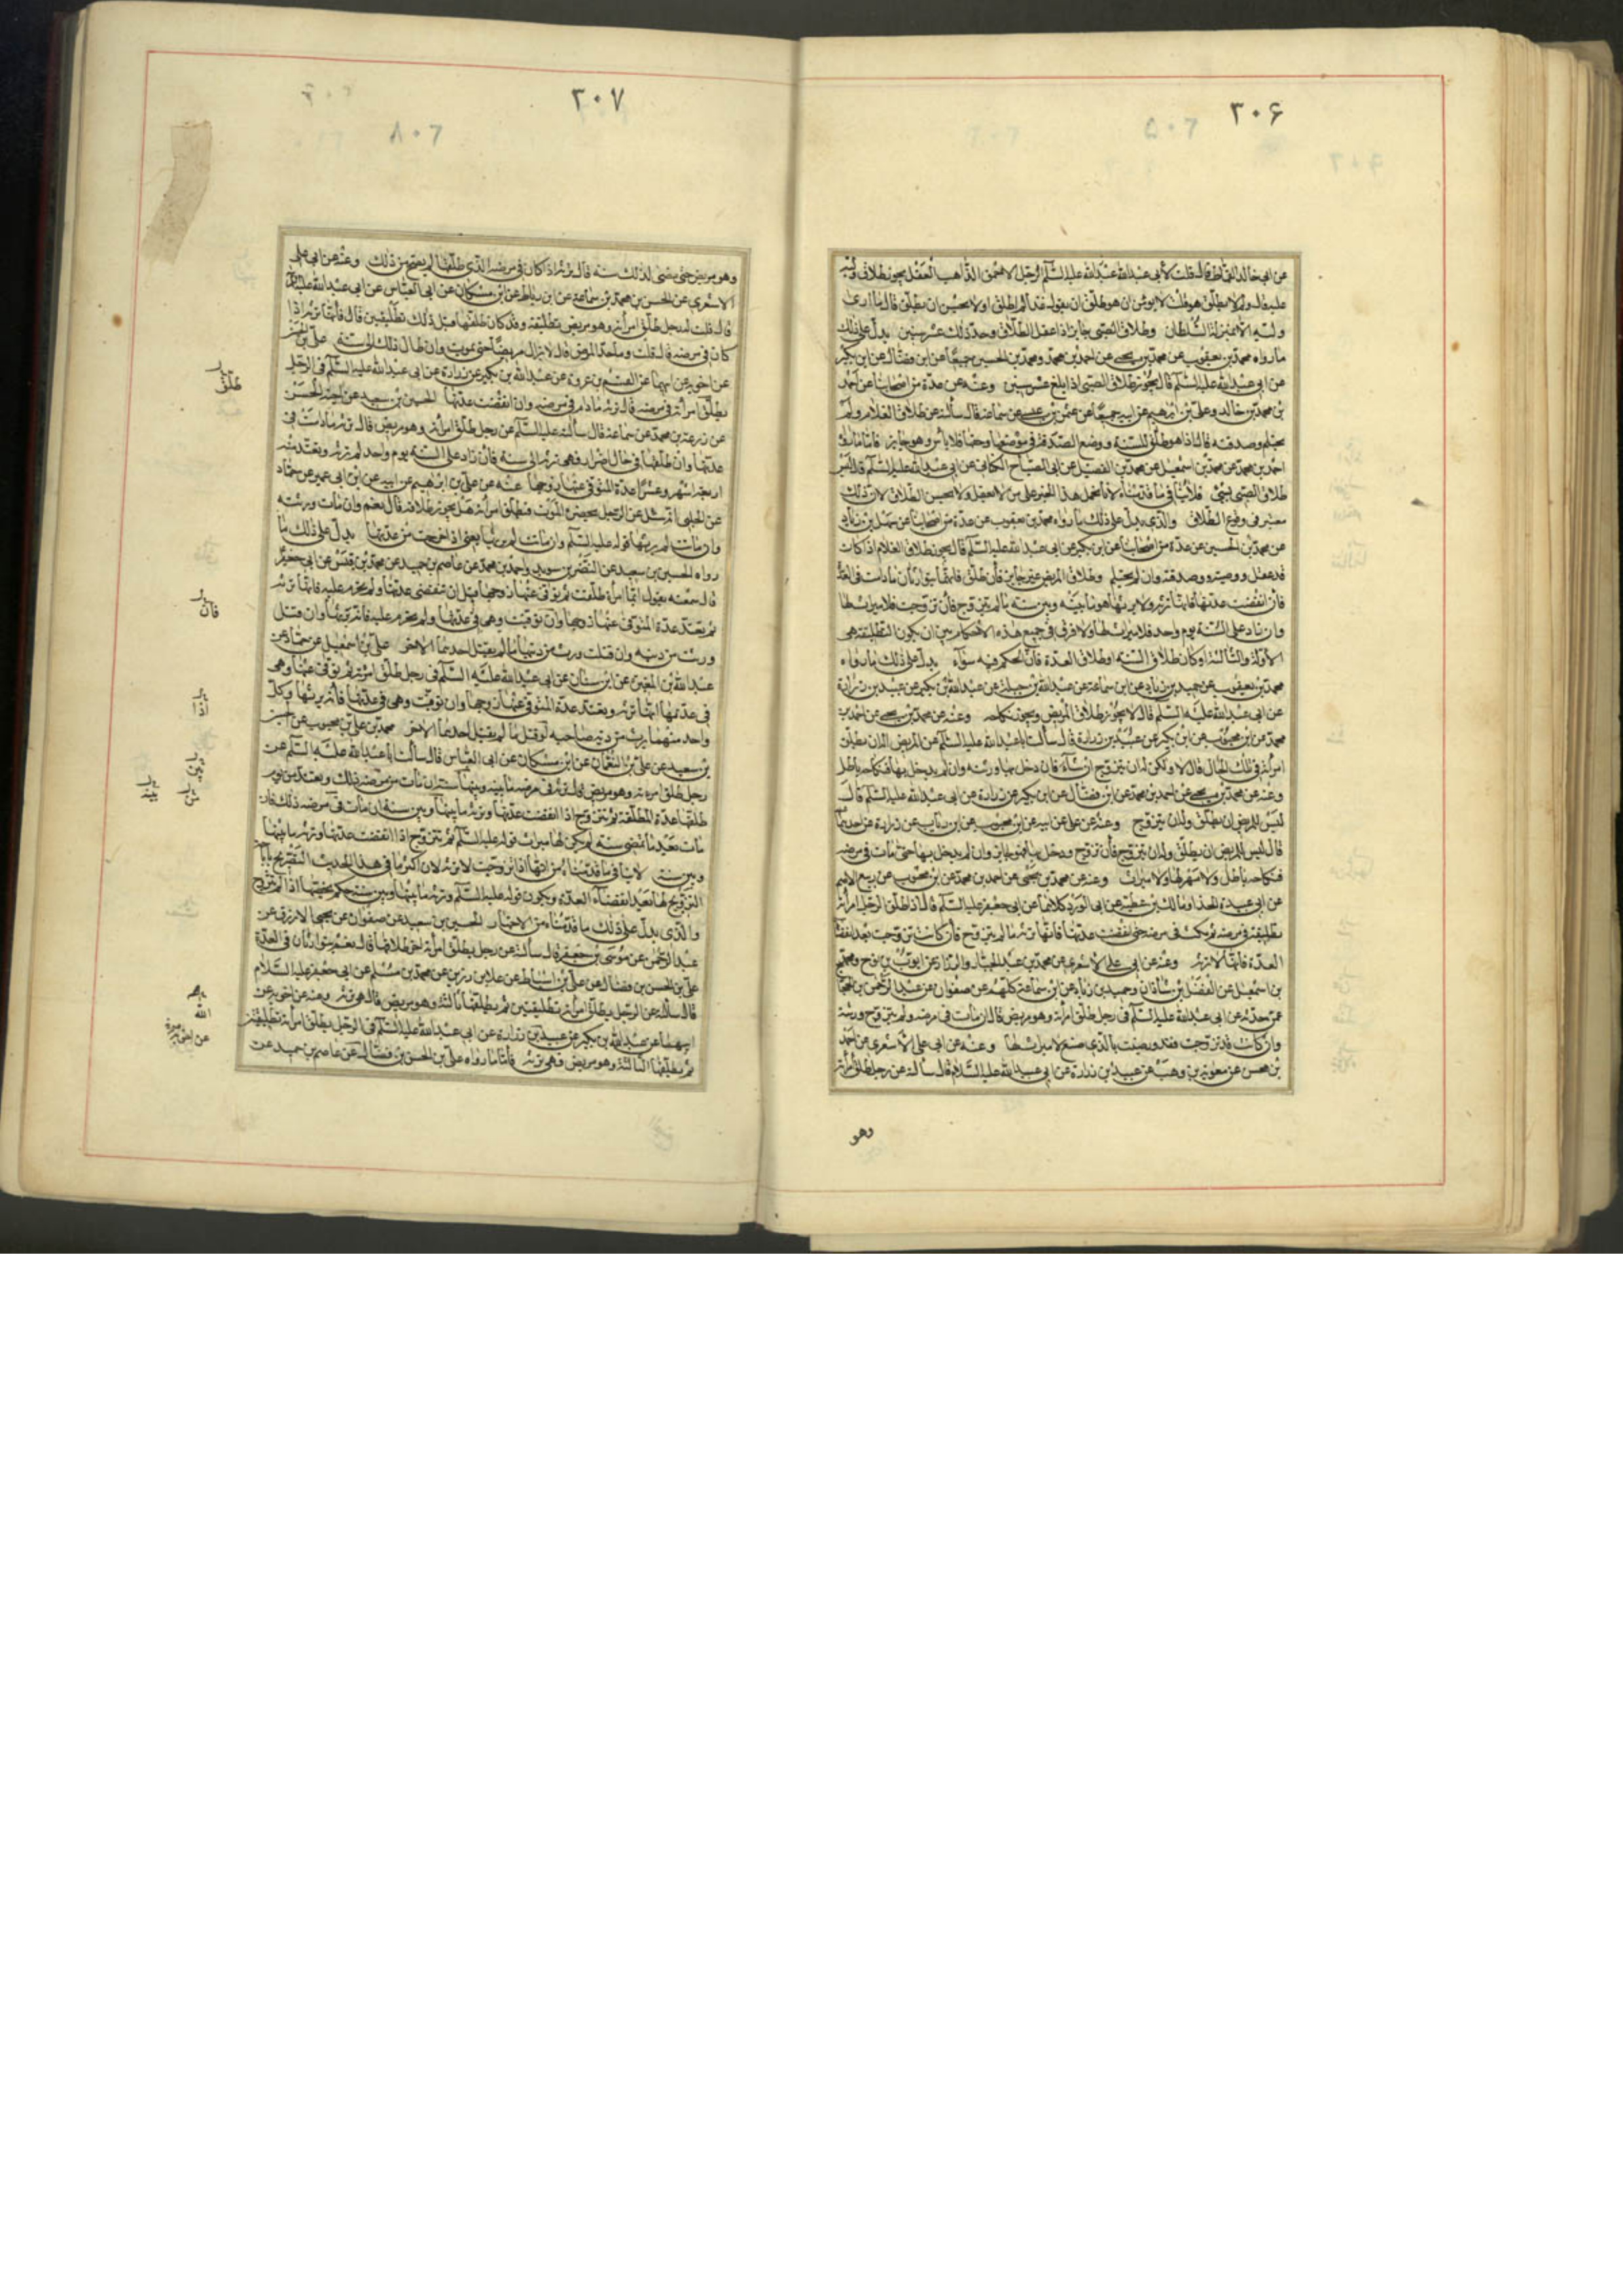 ٣٠۶
عن ابى خالد القماط قال قلت لأبى عبد الله عليه السلم الرجل الاحمق الذاهب العقل يجوز طلاق وليه
عليه قال ولم لا يطلق هو قلت لا يؤمن ان هو طلق ان يقول غدا لم اطلق او لا يحسن ان يطلق قال ما ارى
وليه الا بمنزلة السلطان وطلاق الصبى جايز اذا عقل الطلاق وحد ذلك عشر سنين يدل على ذلك
ما رواه محمد بن يعقوب عن محمد بن يحيى عن احمد بن محمد ومحمد بن الحسين جميعا عن ابن فضال عن ابن بكير
عن ابى عبد الله عليه السلم قال يجوز طلاق الصبى اذا بلغ عشر سنين وعنه عن عدة من اصحابنا عن احمد
بن محمد بن خالد وعلى بن ابرهيم عن ابيه جميعا عن عثمن بن عيسى عن سماعة قال سألته عن طلاق الغلام ولم
يحتلم وصدقته قال اذا هو طلق للسنة ووضع الصدقة فى موضعها وحقها فلا بأس وهو جايز فاما ما رواه
احمد بن محمد عن محمد بن اسمعيل عن محمد بن الفضيل عن ابى الصباح الكنانى عن ابى عبد الله عليه السلم قال ليس
طلاق الصبى بشئ فلا ينافى ما قدمناه لانا نحمل هذا الخبر على من لا يعقل ولا يحسن الطلاق لان ذلك
معتبر فى وقوع الطلاق والذى يدل على ذلك ما رواه محمد بن يعقوب عن عدة من اصحابنا عن سهل بن زياد
عن محمد بن الحسين عن عدة من اصحابنا عن ابن بكير عن ابى عبد الله عليه السلم قال يجوز طلاق الغلام اذا كان
قد عقل ووصيته وصدقته وان لم يحتلم وطلاق المريض غير جايز فأن طلق فانهما يتوارثان ما دامت فى العدة
فأن انقضت عدتها فانها ترثه ولا يرثها هو ما بينه وبين سنة ما لم يتزوج فأن تزوجت فلا ميراث لها
وان زاد على السنة يوم واحد فلا ميراث لها ولا فرق فى جميع هذه الأحكام بين ان يكون التطليقة هى
الأولة والثالثة او كان طلاق السنة او طلاق العدة فأن الحكم فيه سواء يدل على ذلك ما رواه
محمد بن يعقوب عن حميد بن زياد عن ابن سماعة عن عبد الله بن جبلة عن عبد الله بن بكير عن عبيد بن زرارة
عن ابى عبد الله عليه السلم قال لا يجوز طلاق المريض ويجوز نكاحه وعنه عن محمد بن يحيى عن احمد بن
محمد عن ابن محبوب عن ابن بكير عن عبيد بن زرارة قال سألت ابا عبد الله عليه السلم عن المريض اله ان يطلق
امرأته فى تلك الحال قال لا ولكن له ان يتزوج ان شآء فان دخل بها ورثته وان لم يدخل بها فنكاحه باطل
وعنه عن محمد بن يحيى عن احمد بن محمد عن ابن فضال عن ابن بكير عن زرارة عن ابى عبد الله عليه السلم قال
ليس للمريض ان يطلق وله ان يتزوج وعنه عن على عن ابيه عن ابن محبوب عن ابن رئاب عن زرارة عن احدهما
قال ليس للمريض ان يطلق وله ان يتزوج فأن تزوج ودخل بها فهو جايز وان لم يدخل بها حتى مات فى مرضه
فنكاحه باطل ولا مهر لها ولا ميراث وعنه عن محمد بن يحيى عن احمد بن محمد عن ابن محبوب عن ربيع الاصم
عن ابى عبيدة الحذا ومالك بن عطية عن ابى الورد كلاهما عن ابى جعفر عليه السلم قال اذا طلق الرجل امرأته
تطليقة فى مرضه ثم مكث فى مرضه حتى انقضت عدتها فانها ترثه ما لم يتزوج فأن كانت تزوجت بعد انقضآء
العدة فانها لا ترثه وعنه عن ابى على الاشعرى عن محمد بن عبد الجبار والرزاز عن ايوب بن نوح ومحمد
بن اسمعيل عن الفضل بن شاذان وحميد بن زياد عن ابن سماعة كلهم عن صفوان عن عبد الرحمن بن الحجاج
عمن حدثه عن ابى عبد الله عليه السلم فى رجل طلق امرأته وهو مريض قال ان مات فى مرضه ولم يتزوج ورثته
وان كانت قد تزوجت فقد رضيت بالذى صنع لا ميراث لها وعنه عن ابى على الأشعرى عن احمد
بن محسن عن معوية بن وهب عن عبيد بن زرارة عن ابى عبد الله عليه السلام قال سألته عن رجل طلق امرأته
وهو
٣٠٧
وهو مريض حتى مضى لذلك سنة قال ترثه اذا كان فى مرضه الذى طلقها لم يصح من ذلك وعنه عن ابى على
الاشعرى عن الحسن بن محمد بن سماعة عن ابن رباط عن ابن مسكان عن ابى العباس عن ابى عبد الله عليه السلم
قال قلت له رجل طلق امرأته وهو مريض تطليقة وقد كان طلقها قبل ذلك تطليقتين قال فأنها ترثه اذا
كان فى مرضه قال قلت وما حد المرض قال لا يزال مريضا حتى يموت وان طال ذلك الى سنة على بن الحسن
عن اخويه عن ابيهما عن القسم بن عروة عن عبد الله بن بكير عن زرارة عن ابى عبد الله عليه السلم فى الرجل
يطلق امرأته فى مرضه قال ترثه ما دام فى مرضه وان انقضت عدتها الحسين بن سعيد عن اخيه الحسن
عن زرعة بن محمد عن سماعة قال سألته عليه السلم عن رجل طلق امرأته وهو مريض قال ترثه ما دامت فى
عدتها وان طلقها فى حال اضرار فهى ترثه الى سنة فأن زاد على السنة يوم واحد لم ترثه وتعتد منه
اربعة اشهر وعشرا عدة المتوفى عنها زوجها عنه عن على بن ابرهيم عن ابيه عن ابن ابى عمير عن حماد
عن الحلبى انه سئل عن الرجل يحضره الموت فيطلق امرأته هل يجوز طلاقه قال نعم وان مات ورثته
وان ماتت لم يرثها قوله عليه السلم وان ماتت لم يرثها يعنى اذا خرجت من عدتها يدل على ذلك ما
رواه الحسين بن سعيد عن النضر بن سويد واحمد بن محمد عن عاصم بن حميد عن محمد بن قيس عن ابى جعفر
قال سمعته يقول ايما امرأة طلقت ثم توفى عنها زوجها قبل ان تنقضى عدتها ولم يحرم عليه فانها ترثه
ثم تعتد عدة المتوفى عنها زوجها وان توفيت وهى فى عدتها ولم يحرم عليه فانه يرثها وان قتل
ورثت من ديته وان قتلت ورث من ديتها ما لم يقتل احدهما الآخر على بن اسمعيل عن حماد عن
عبد الله بن المغيرة عن ابن سنان عن ابى عبد الله عليه السلم فى رجل طلق امرأته ثم توفى عنها وهى
فى عدتها انها ترثه وتعتد عدة المتوفى عنها زوجها وان توفيت وهى فى عدتها فأنه يرثها وكل
واحد منهما يرث من دية صاحبه لو قتل ما لم يقتل احدهما الآخر محمد بن على بن محبوب عن الحسين
بن سعيد عن على بن النعمان عن ابن مسكان عن ابى العباس قال سألت ابا عبد الله عليه السلم عن
رجل طلق امرءته وهو مريض قال ترثه فى مرضه ما بينه وبينها سنة ان مات من مرضه ذلك وتعتد من يوم
طلقها عدة المطلقة ثم تتزوج اذا انقضت عدتها وترثه ما بينها وبين سنة ان مات فى مرضه ذلك فان
مات بعد ما تمضى سنة لم يكن لها ميراث قوله عليه السلم ثم تتزوج اذا انقضت عدتها وترثه ما بينها
وبين سنة لا ينافى ما قدمناه من انها اذا تزوجت لا ترثه لان اكثر ما فى هذا الحديث التصريح باباحة
التزويج لها بعد انقضاء العدة ويكون قوله عليه السلم وترثه ما بينها وبين سنة حكم يخصها اذا لم تتزوج
والذى يدل على ذلك ما قدمناه من الاخبار الحسين بن سعيد عن صفوان عن يحيى الازرق عن
عبد الرحمن عن موسى بن جعفر قال سألته عن رجل يطلق امرأته آخر طلاقها قال نعم يتوارثان فى العدة
على بن الحسن بن فضال عن على بن اسباط عن علا بن رزين عن محمد بن مسلم عن ابى جعفر عليه السلام
قال سألته عن الرجل يطلق امرأته تطليقتين ثم يطلقها ثالثة وهو مريض قال هو ترثه وعنه عن اخويه عن
ابيهما عن عبد الله بن بكير عن عبيد بن زرارة عن ابى عبد الله عليه السلم فى الرجل يطلق امرأته تطليقتين
ثم يطلقها الثالثة وهو مريض وهى ترثه فأما ما رواه على بن الحسن بن فضال عن عاصم بن حميد عن
طلق
فان
اذا
الله